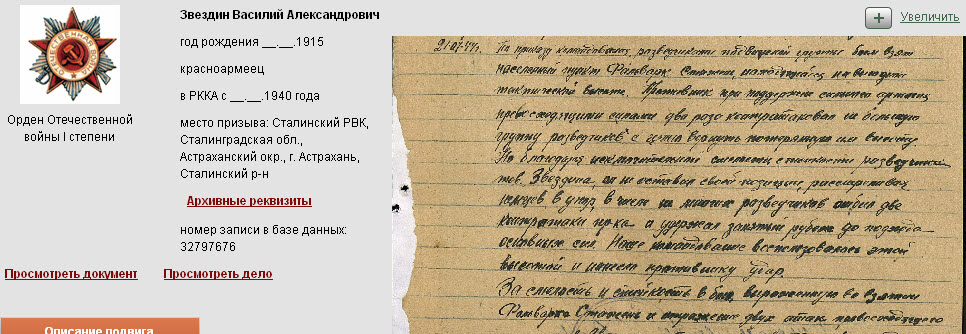 Звездин Василий Александрович
Увеличить
год рождения __.__.1915
красноармеец
в РККА с __.__.1940 года
Орден Отечественной
войны I степени
место призыва: Сталинский РВК,
Сталинградская обл.,
Астраханский окр., г. Астрахань,
Сталинский р-н
Архивные реквизиты
номер записи в базе данных:
32797676
Просмотреть документ
Просмотреть дело
Описание подвига
21.07.44г. По приказу командования разведчики небольшой группы были взят
населенный пункт Фольварк Стажени, находящийся на выгодной
тактической высоте. Противник при поддержке сильной артогня
превосходящими силами два раза контратаковал не большую
группу разведчиков с целью вернуть потерянную им высоту.
Но благодаря исключительной смелости и стойкости разведчика
тов. Звездина, он не оставил своей позиции, расстреливая
немцев в упор, в числе не многих разведчиков отбил две
контратаки пр-ка и удержал занятый рубеж до подхода
основных сил. Наше командование воспользовалось этой
высотой и нанесло противнику удар
За смелость и стойкость в бою, выраженную во взятии
Фольварка Стажень и отражении двух атак превосходящего